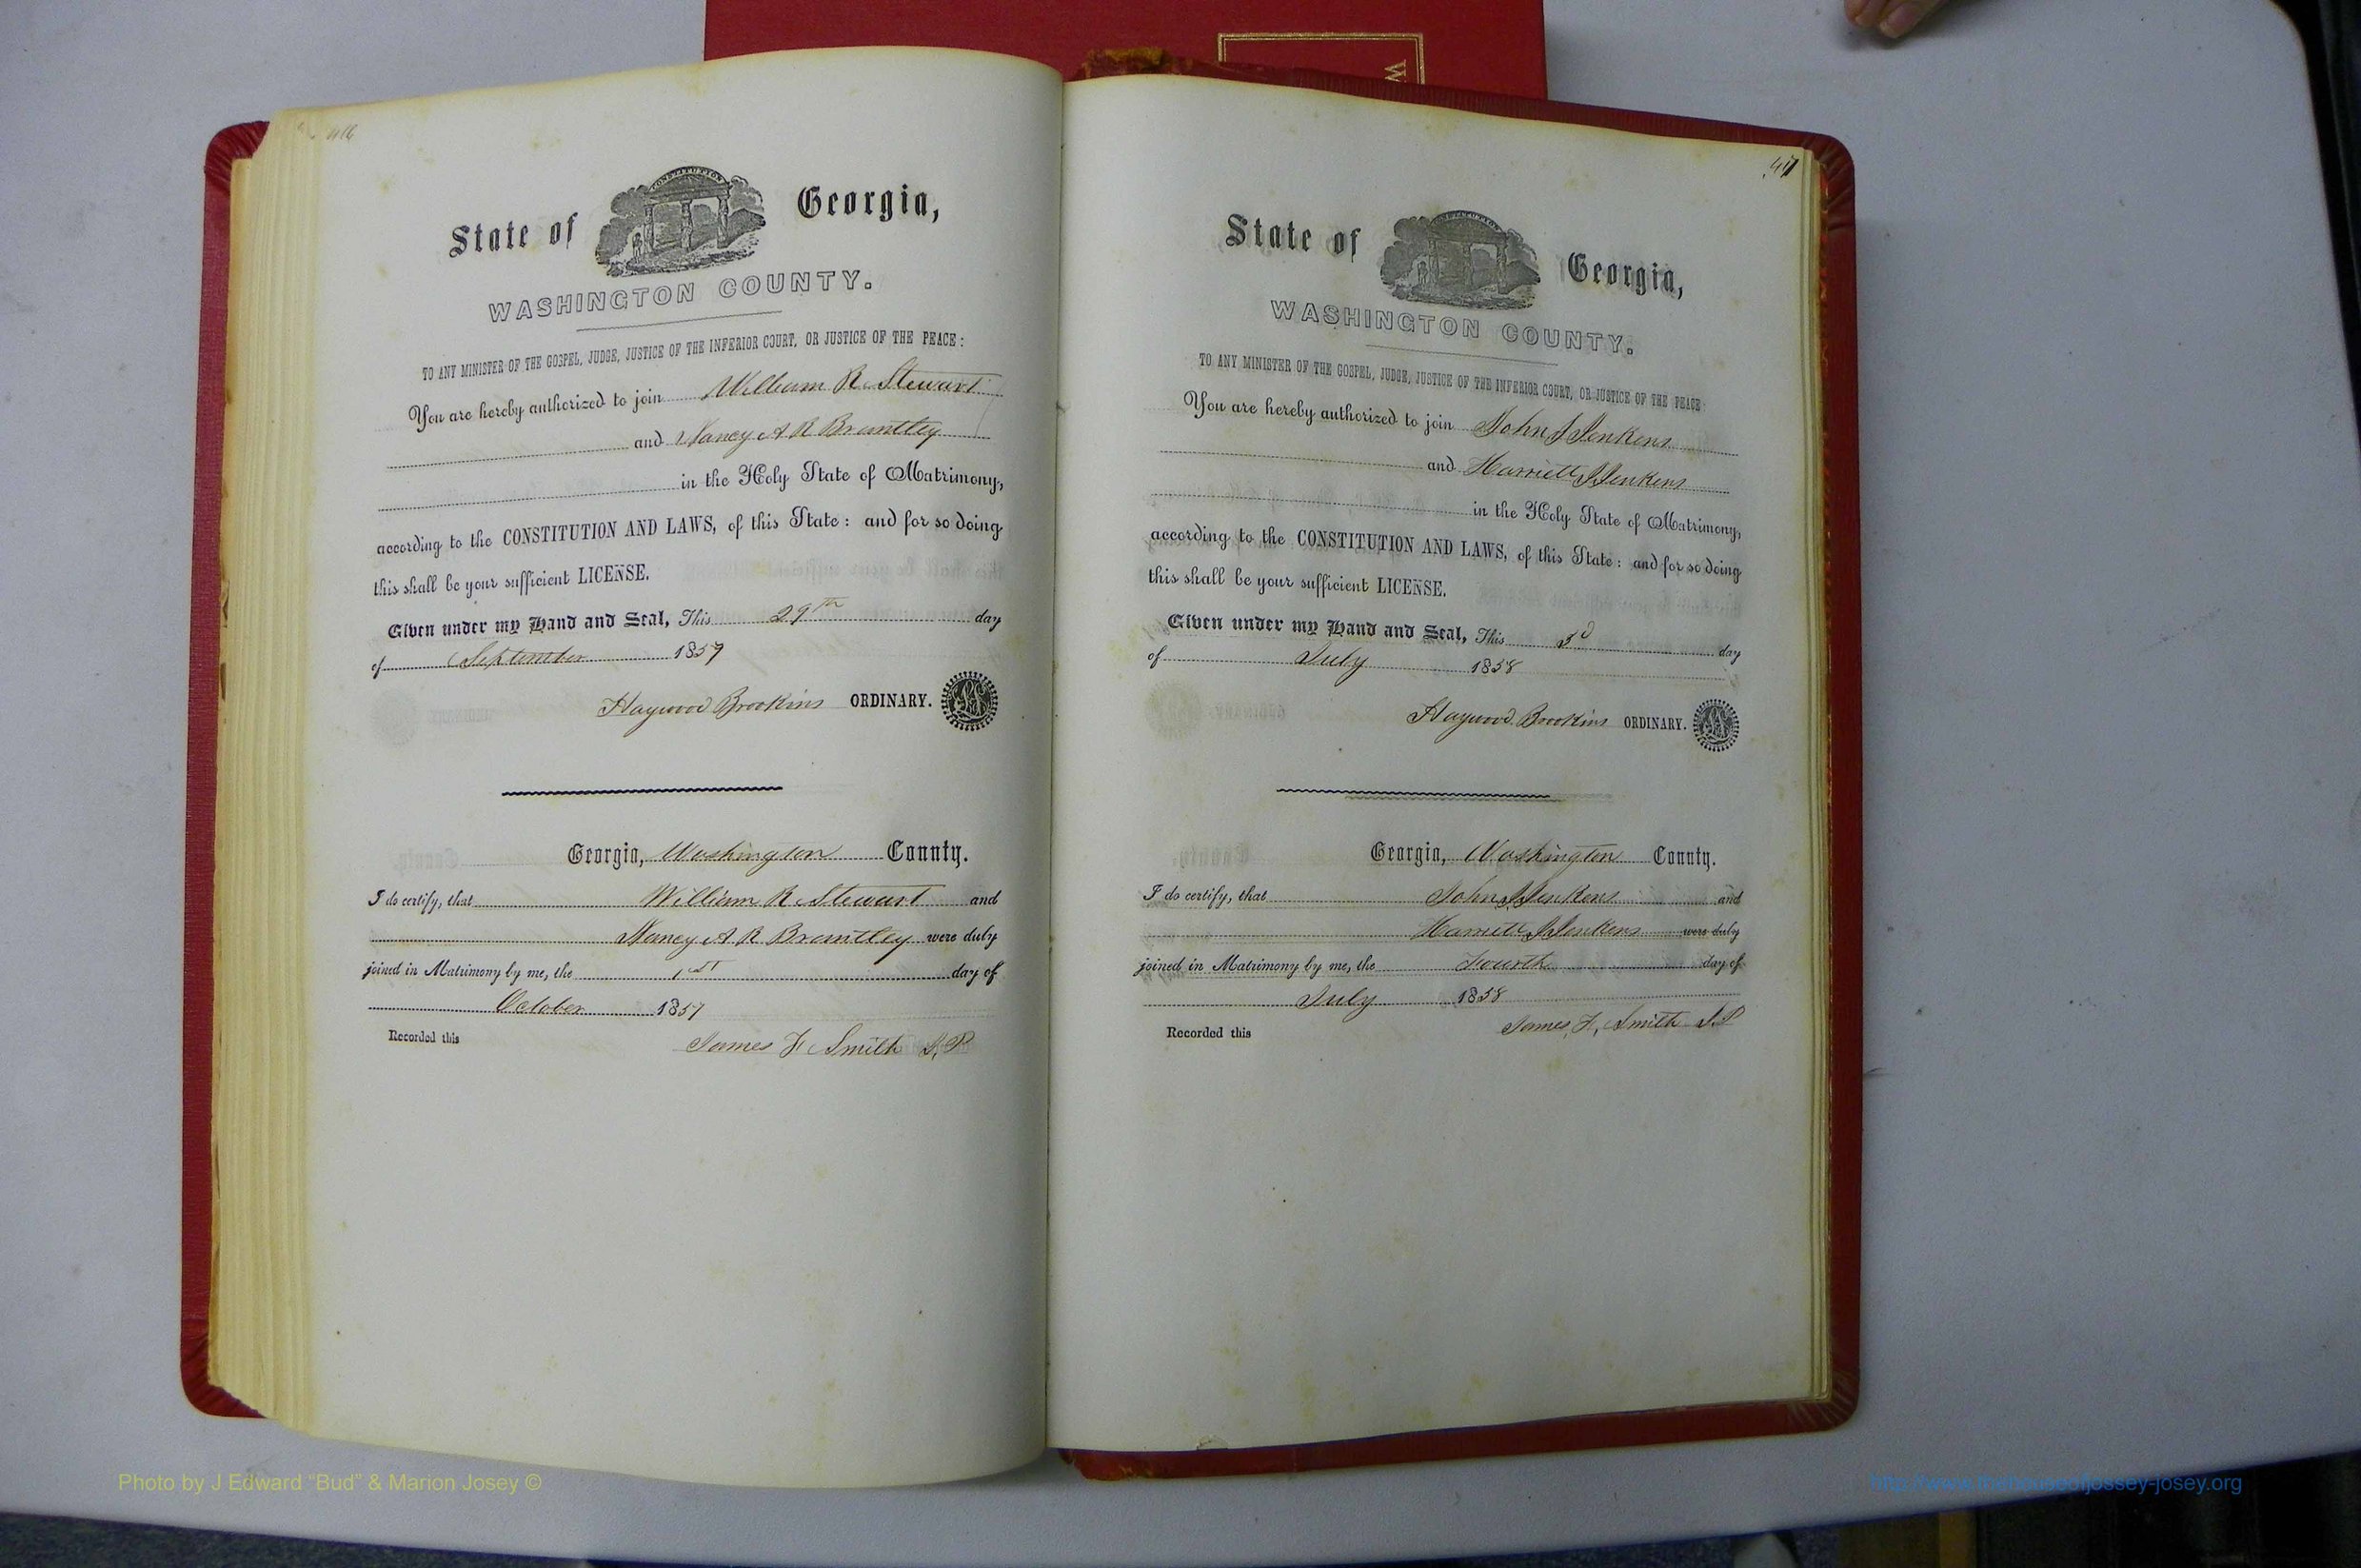 W
CONSTITUTION
State of Georgia,
WASHINGTON COUNTY.
TO ANY MINISTER OF THE GOSPEL, JUDGE, JUSTICE OF THE INFERIOR COURT, OR JUSTICE OF THE PEACE:
You are hereby authorized to join William R. Stewart
and Nancy A R Brantley
in the Holy State of Matrimony,
according to the CONSTITUTION AND LAWS, of this State: and for so doing
this shall be your sufficient LICENSE.
Given under my Hand and Seal, This 29th day
of September 1857
Haywood Brookins ORDINARY.
Georgia, Washington County.
I do certify, that William R. Stewart and
Nancy A R Brantley were duly
joined in Matrimony by me, the 1st day of
October 1857
Recorded this James F Smith J.P
47
CONSTITUTION
State of Georgia,
WASHINGTON COUNTY.
TO ANY MINISTER OF THE GOSPEL, JUDGE, JUSTICE OF THE INFERIOR COURT, OR JUSTICE OF THE PEACE:
You are hereby authorized to join John J Jenkens
and Harriett J Jenkens
in the Holy State of Matrimony,
according to the CONSTITUTION AND LAWS, of this State: and for so doing
this shall be your sufficient LICENSE.
Given under my Hand and Seal, This 3d day
of July 1858
Haywood Brookins ORDINARY.
Georgia, Washington County.
I do certify, that John J Jenkens and
Harriett J Jenkens were duly
joined in Matrimony by me, the Fourth day of
July 1858
Recorded this James F. Smith J.P
Photo by J Edward “Bud” & Marion Josey ©
http://www.thehouseofjossey-josey.org